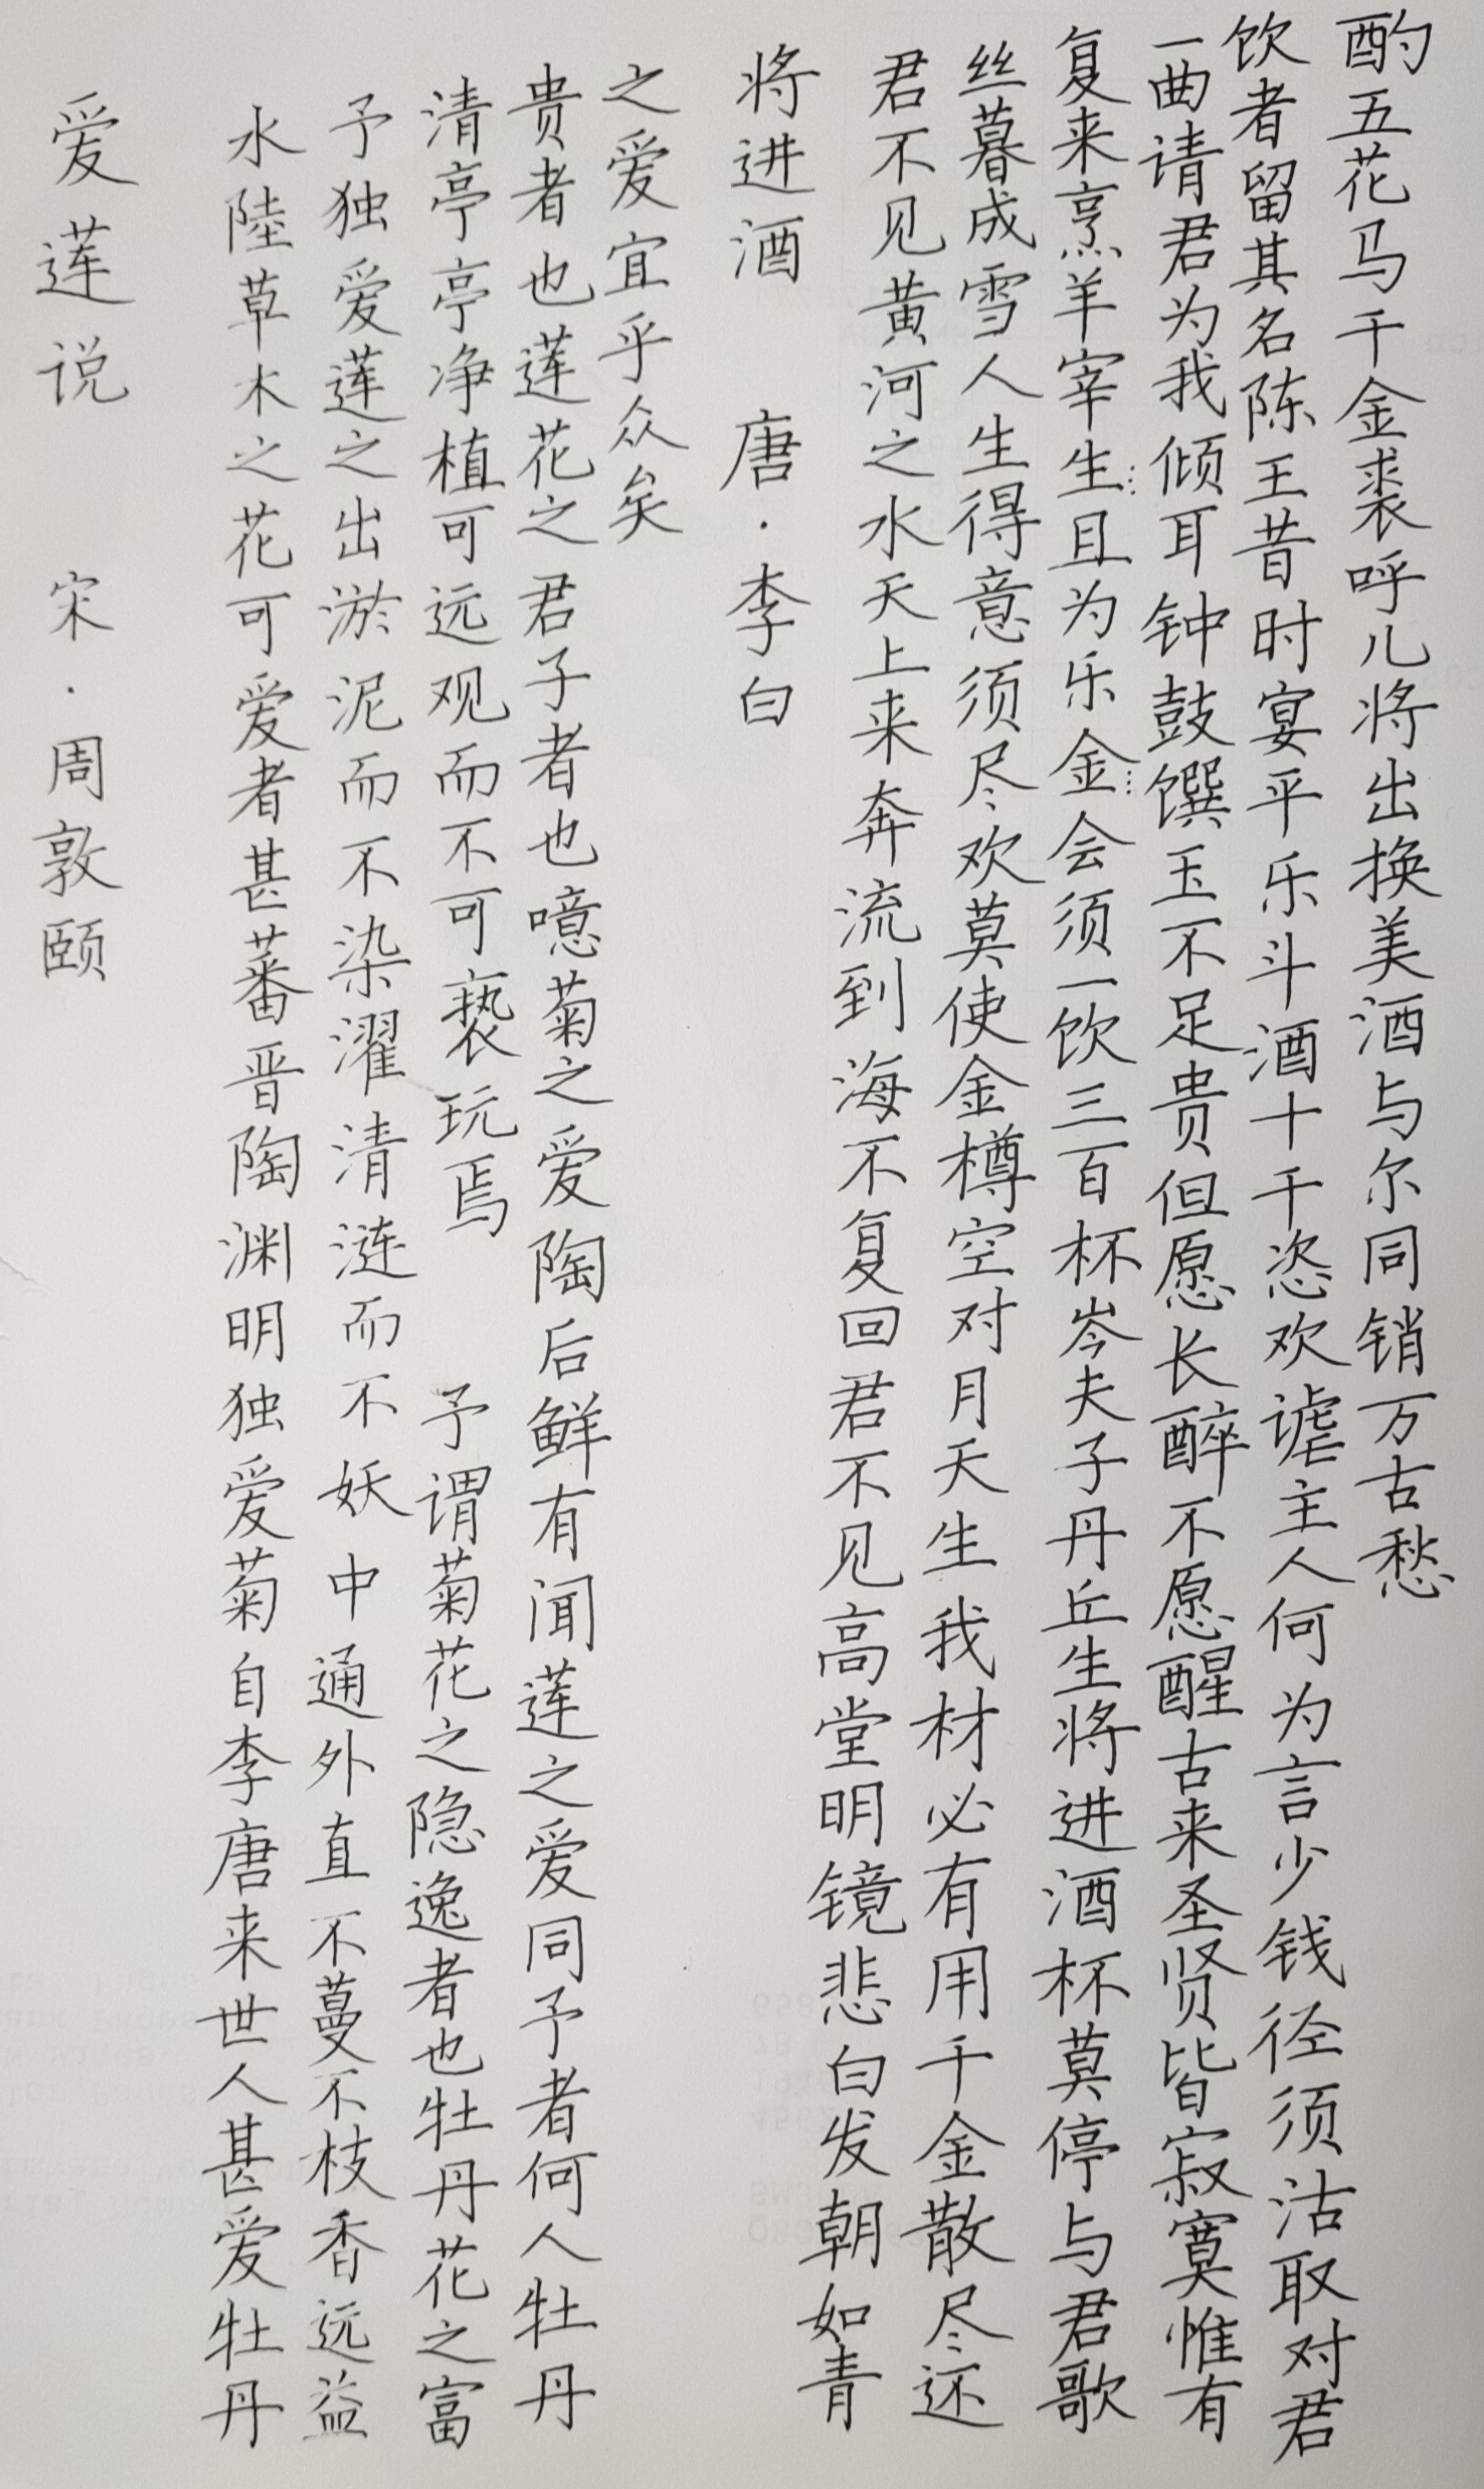 爱莲说 宋·周敦颐
水陸草木之花可爱者甚蕃晋陶渊明独爱菊自李唐来世人甚爱牡丹
予独爱莲之出淤泥而不染濯清涟而不妖中通外直不蔓不枝香远益
清亭亭净植可远观而不可亵玩焉 予谓菊花之隐逸者也牡丹花之富
贵者也莲花之君子者也噫菊之爱陶后鲜有闻莲之爱同予者何人牡丹
之爱宜乎众矣
将进酒 唐·李白
君不见黄河之水天上来奔流到海不复回君不见高堂明镜悲白发朝如青
丝暮成雪人生得意须尽欢莫使金樽空对月天生我材必有用千金散尽还
复来烹羊宰生且为乐金会须一饮三百杯岑夫子丹丘生将进酒杯莫停与君歌
一曲请君为我倾耳钟鼓馔玉不足贵但愿长醉不愿醒古来圣贤皆寂寞惟有
饮者留其名陈王昔时宴平乐斗酒十千恣欢谑主人何为言少钱径须沽取对君
酌五花马千金裘呼儿将出换美酒与尔同销万古愁